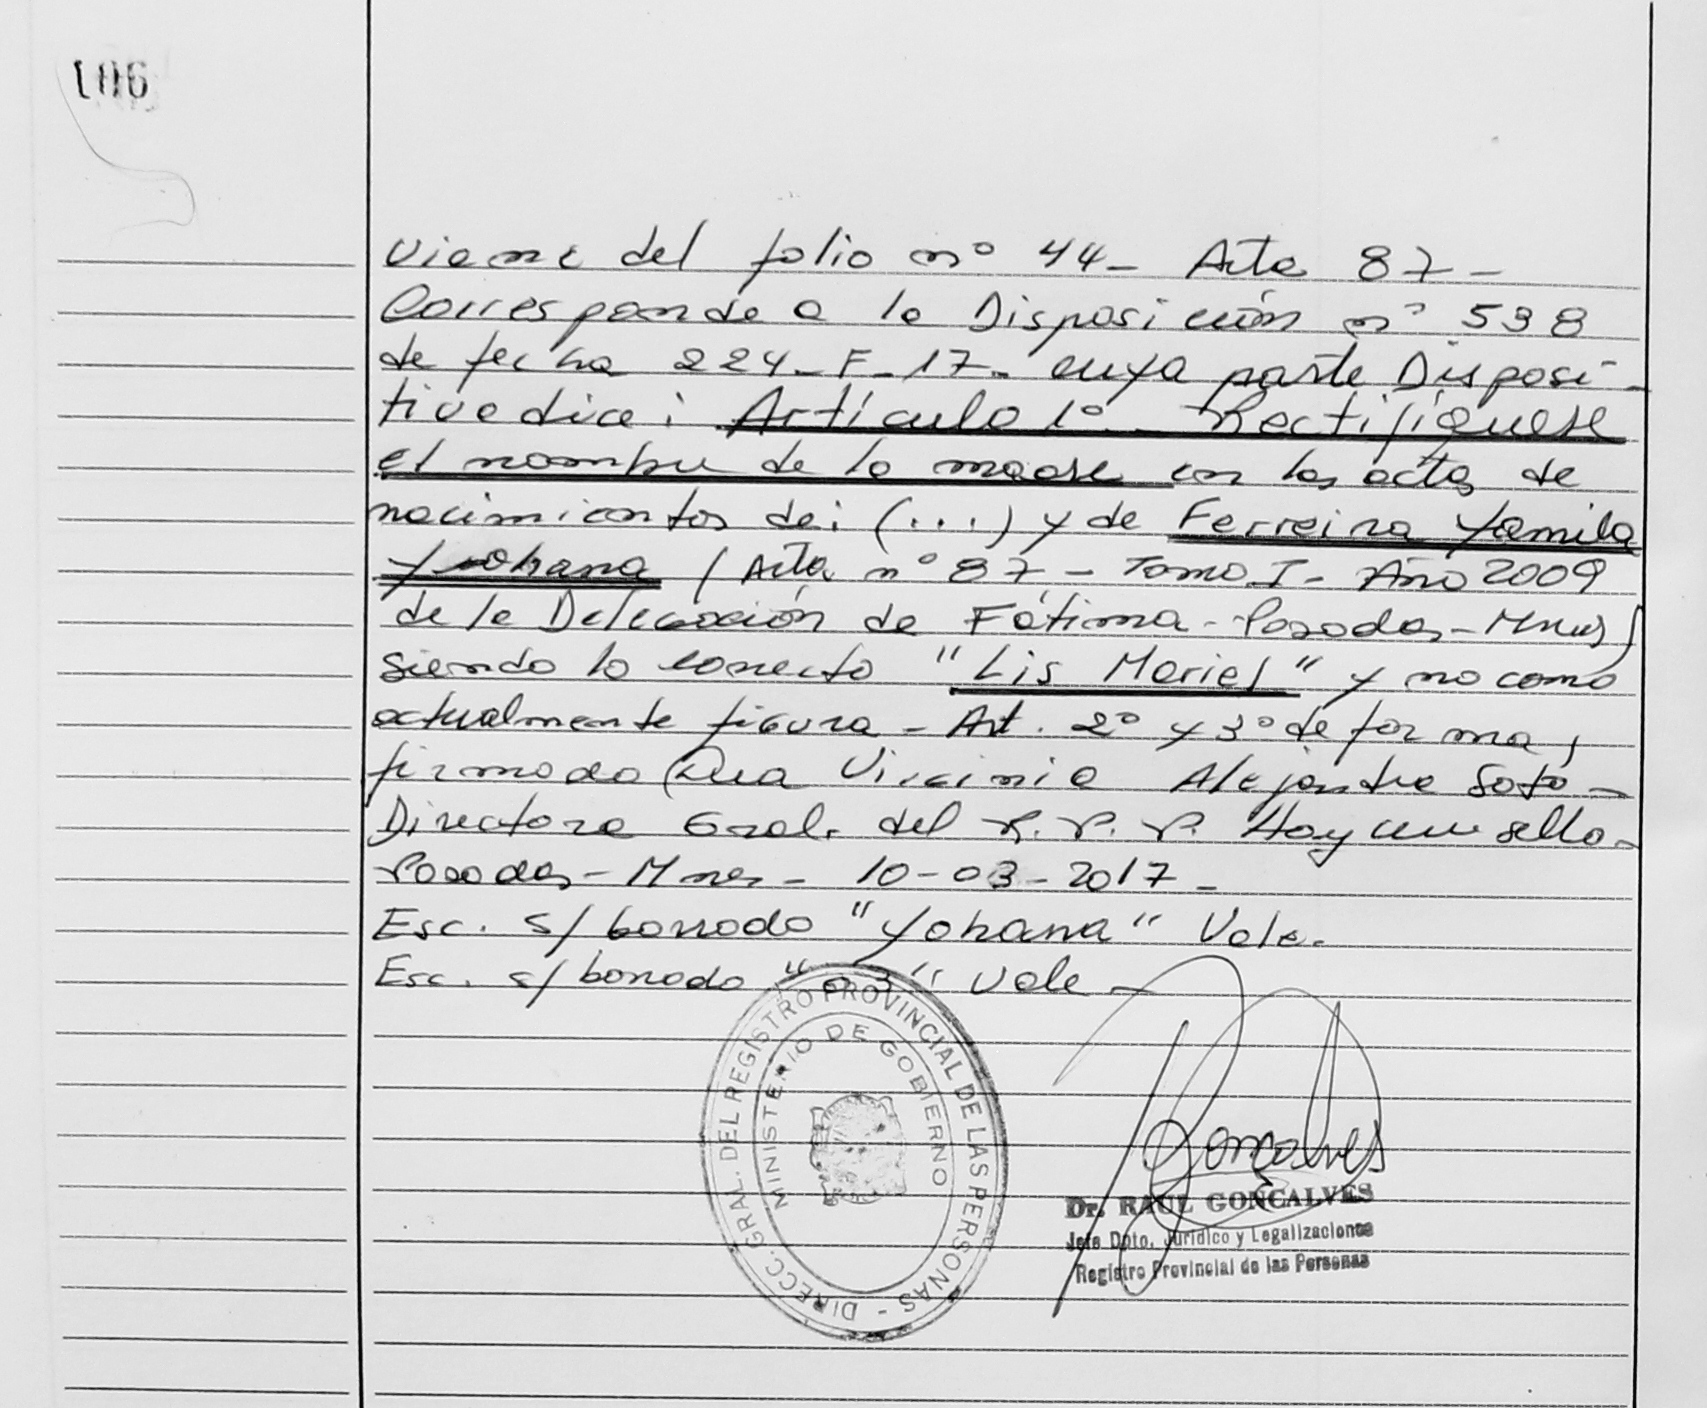 106
Viene del folio nº 44- Acta 87-
Corresponde a la Disposición nº 538
de fecha 224-F-17- cuya parte Disposi-
tiva dice: Artículo 1º- Rectifíquese
el nombre de la madre en las actas de
nacimientos de: (...) y de Ferreira Yamila
Yohana (Acta nº 87- Tomo I- Año 2009
de la Delegación de Fátima- Posadas- Mnes)
siendo lo correcto "Lis Mariel" y no como
actualmente figura- Art. 2º y 3º de forma,
firmado Dra Virginia Alejandra Soto-
Directora Gral. del R.P.P. Hay un sello-
Posadas- Mnes- 10-03-2017-
Esc. s/ borrado "Yohana" Vale.
Esc. s/ borrado "03" Vale-
DIRECC. GRAL. DEL REGISTRO PROVINCIAL DE LAS PERSONAS -
MINISTERIO DE GOBIERNO
Goncalves
Dr. RAUL GONCALVES
Jefe Dpto. Jurídico y Legalizaciones
Registro Provincial de las Personas